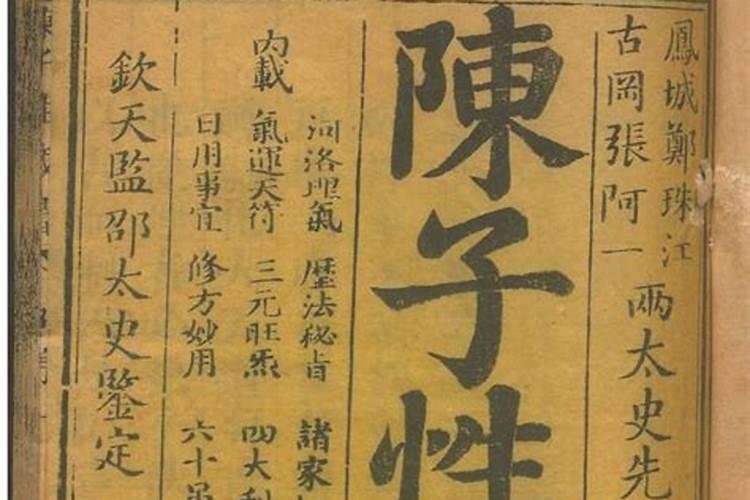 鳳城鄭珠江
古岡張阿一
兩太史先
陳子性
內載
河洛理氣 歷法秘旨 諸家
氣運天符 三元旺炁 四大利
日用事宜 修方妙用 六十
欽天監邵太史鑒定